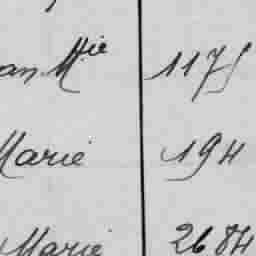 an Mie 1175
Marie 194
Marie 2684